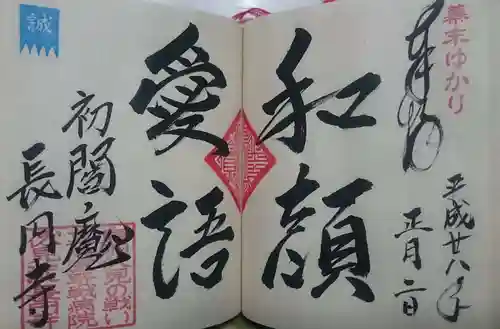 幕末ゆかり
奉拝
平成廿八年
正月二日
和顔
愛語
誠
初閻魔
長円寺